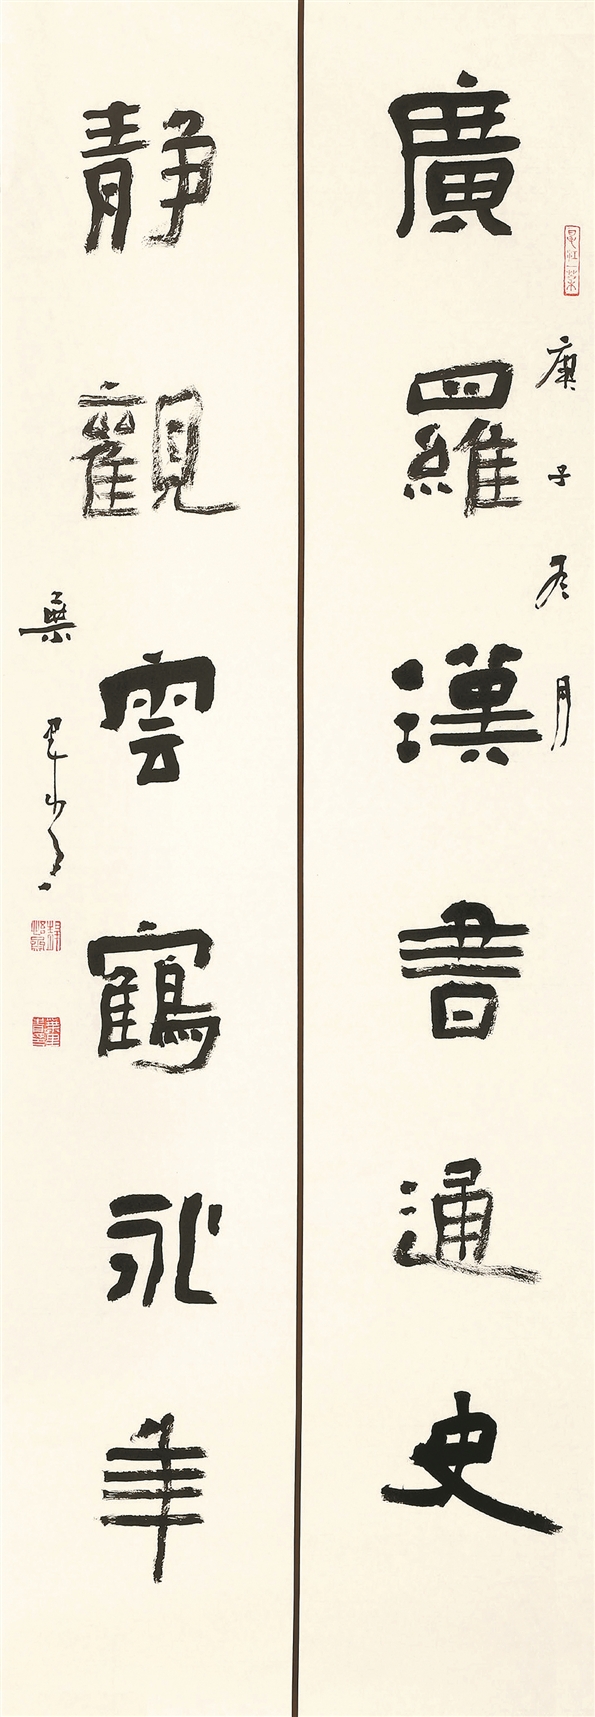 廣羅漢書通史
庚子冬月
靜觀雲鶴永年